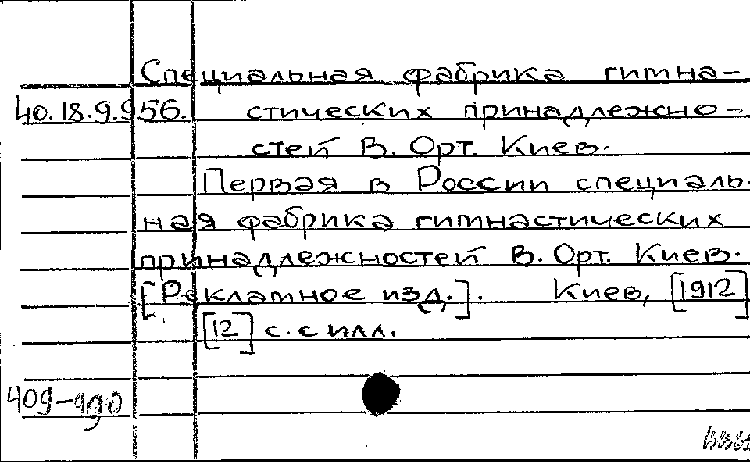 Специальная фабрика гимна-
40.18.9.956. стических принадлежно-
стей В. Орт. Киев.
Первая в России специаль-
ная фабрика гимнастических
принадлежностей В. Орт. Киев.
[Рекламное изд.]. Киев, [1912]
[12] с. с илл.
409-490